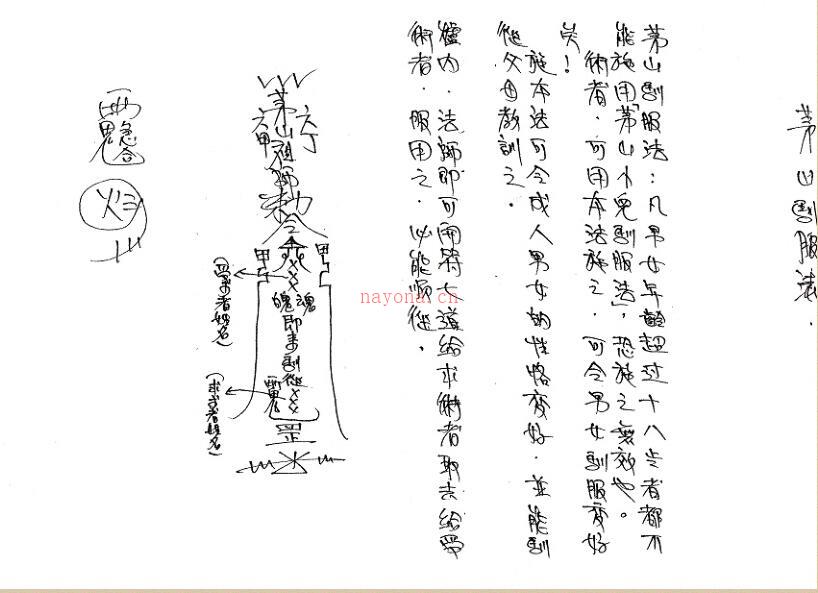 茅山馴服法．
茅山馴服法：凡男女年齡超过十八岁者都不
能施用「茅山小鬼馴服法」，恐施之無效也。
術者．可用本法施之．可令男女馴服变好
矣！
施本法可令成人男女的性格变好．並能馴
從父母教訓之．
爐内．法師即可用符七道給求術者取去給受
術者．服用之．必能順從．
六丁
茅山祖師勅令
六甲
甲
甲
魂
魄即來馴從××
(受術者姓名)
(求術者姓名)
罡
nayona.cn